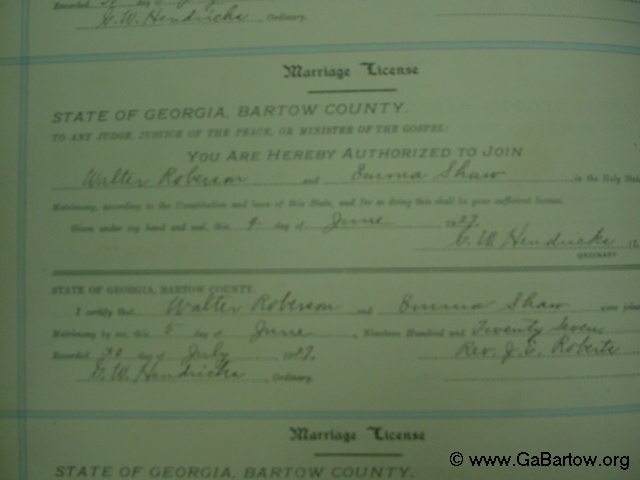 Recorded 30 day of
G. W. Hendricks Ordinary.
Marriage License
STATE OF GEORGIA, BARTOW COUNTY.
TO ANY JUDGE, JUSTICE OF THE PEACE, OR MINISTER OF THE GOSPEL:
YOU ARE HEREBY AUTHORIZED TO JOIN
Walter Roberson and Emma Shaw in the Holy State
Matrimony, according to the Constitution and laws of this State, and for so doing this shall be your sufficient license.
Given under my hand and seal, this day of June 1927
G. W. Hendricks
ORDINARY
STATE OF GEORGIA, BARTOW COUNTY.
I certify that Walter Roberson and Emma Shaw were joined
Matrimony by me, this 5 day of June, Nineteen Hundred and Twenty Seven
Recorded 30 day of July 1927. Rev. J. E. Roberts
G. W. Hendricks, Ordinary.
Marriage License
STATE OF GEORGIA, BARTOW COUNTY.
© www.GaBartow.org